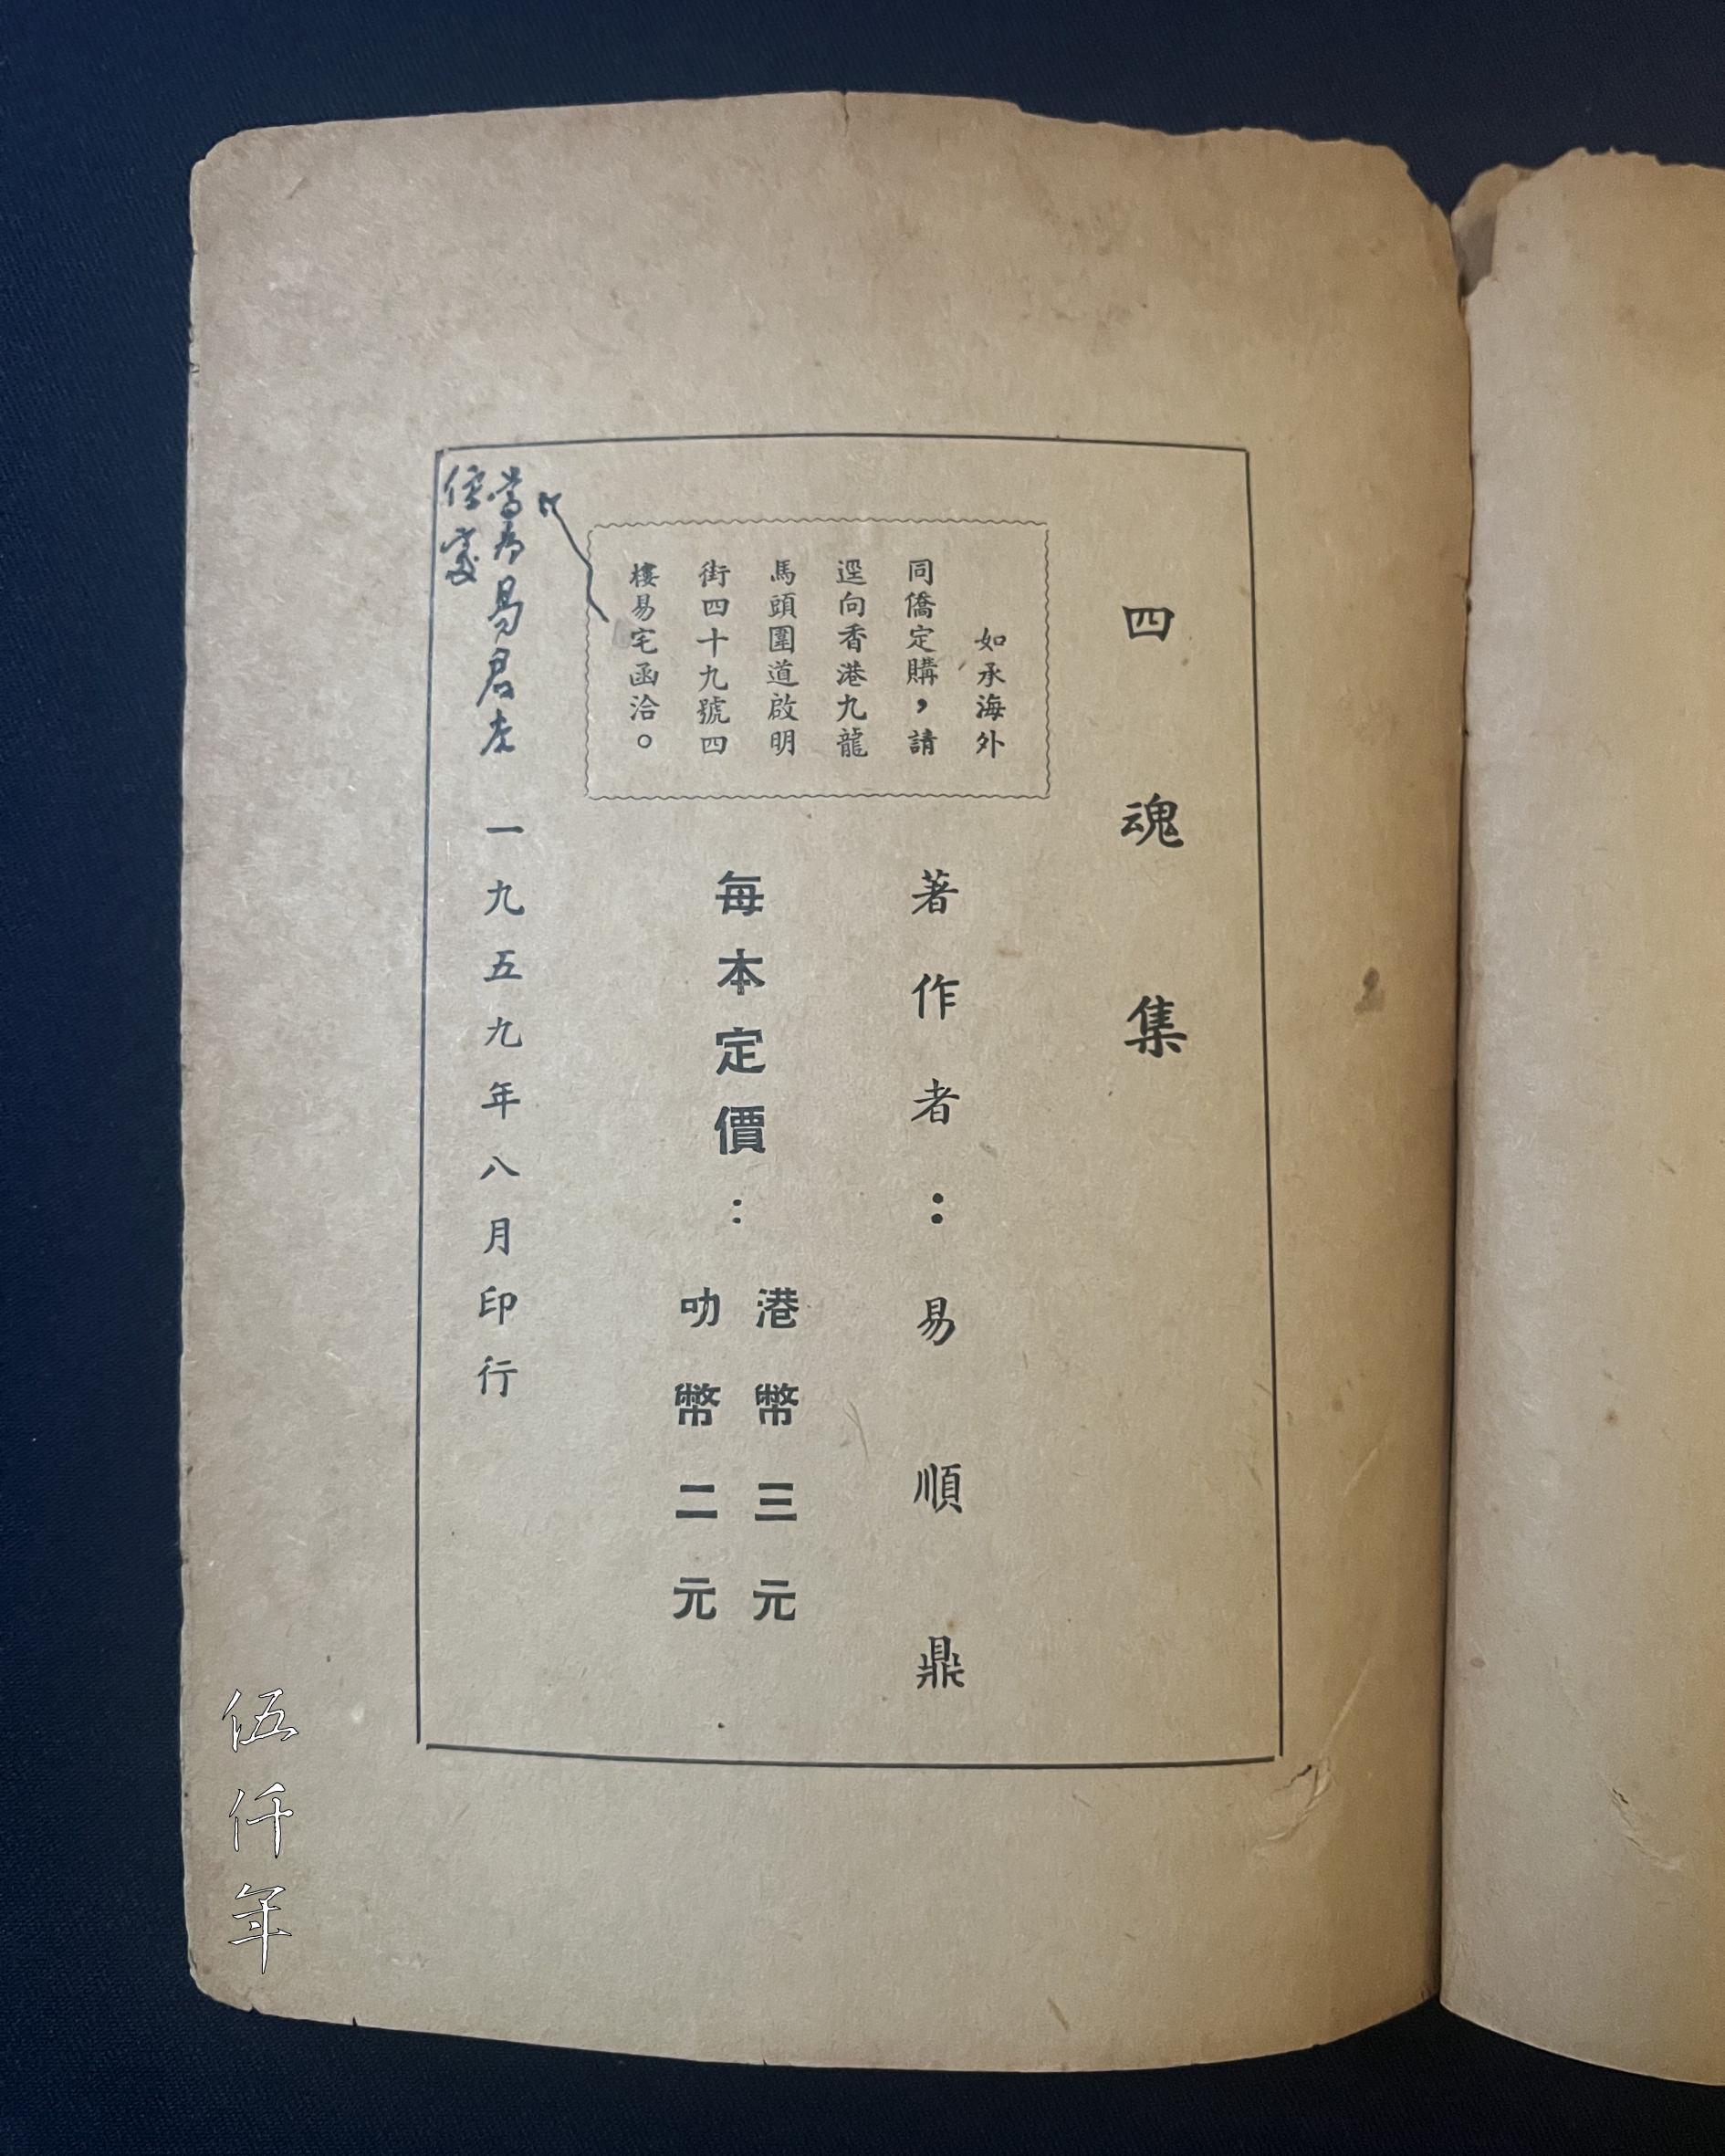 四魂集
如承海外
同僑定購，請
逕向香港九龍
馬頭圍道啟明
街四十九號四
樓易宅函洽。
著作者：易順鼎
每本定價：
港幣三元
叻幣二元
當為易君左
住處
一九五九年八月印行
伍仟年